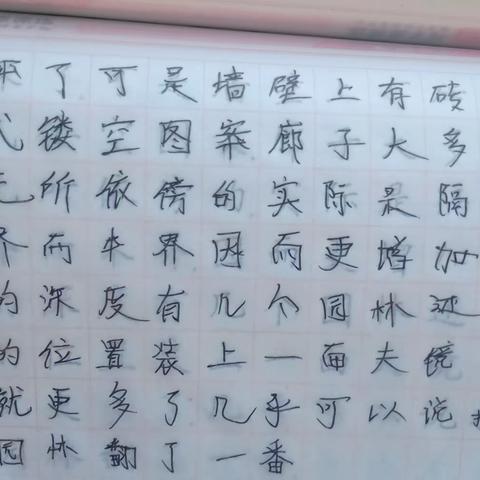 来了可是墙壁上有砖
式镂空图案廊子大多
无所依傍的实际是隔
界而未界因而更增加
的深度有几个园林还
的位置装上一面大镜
就更多了几乎可以说
园林翻了一番